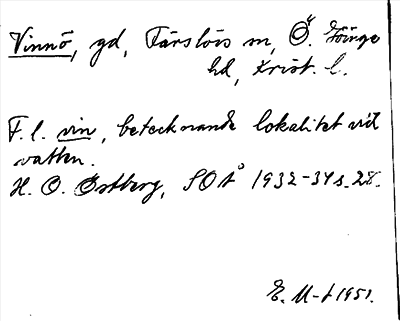 Vinnö, gd, Färlövs sn, Ö. Göinge
hd, Krist. l.
F. l. vin, betecknande lokalitet vid
vatten.
H. O. Östberg, SOÅ 1932-34 s. 28.
E. M-t 1951.